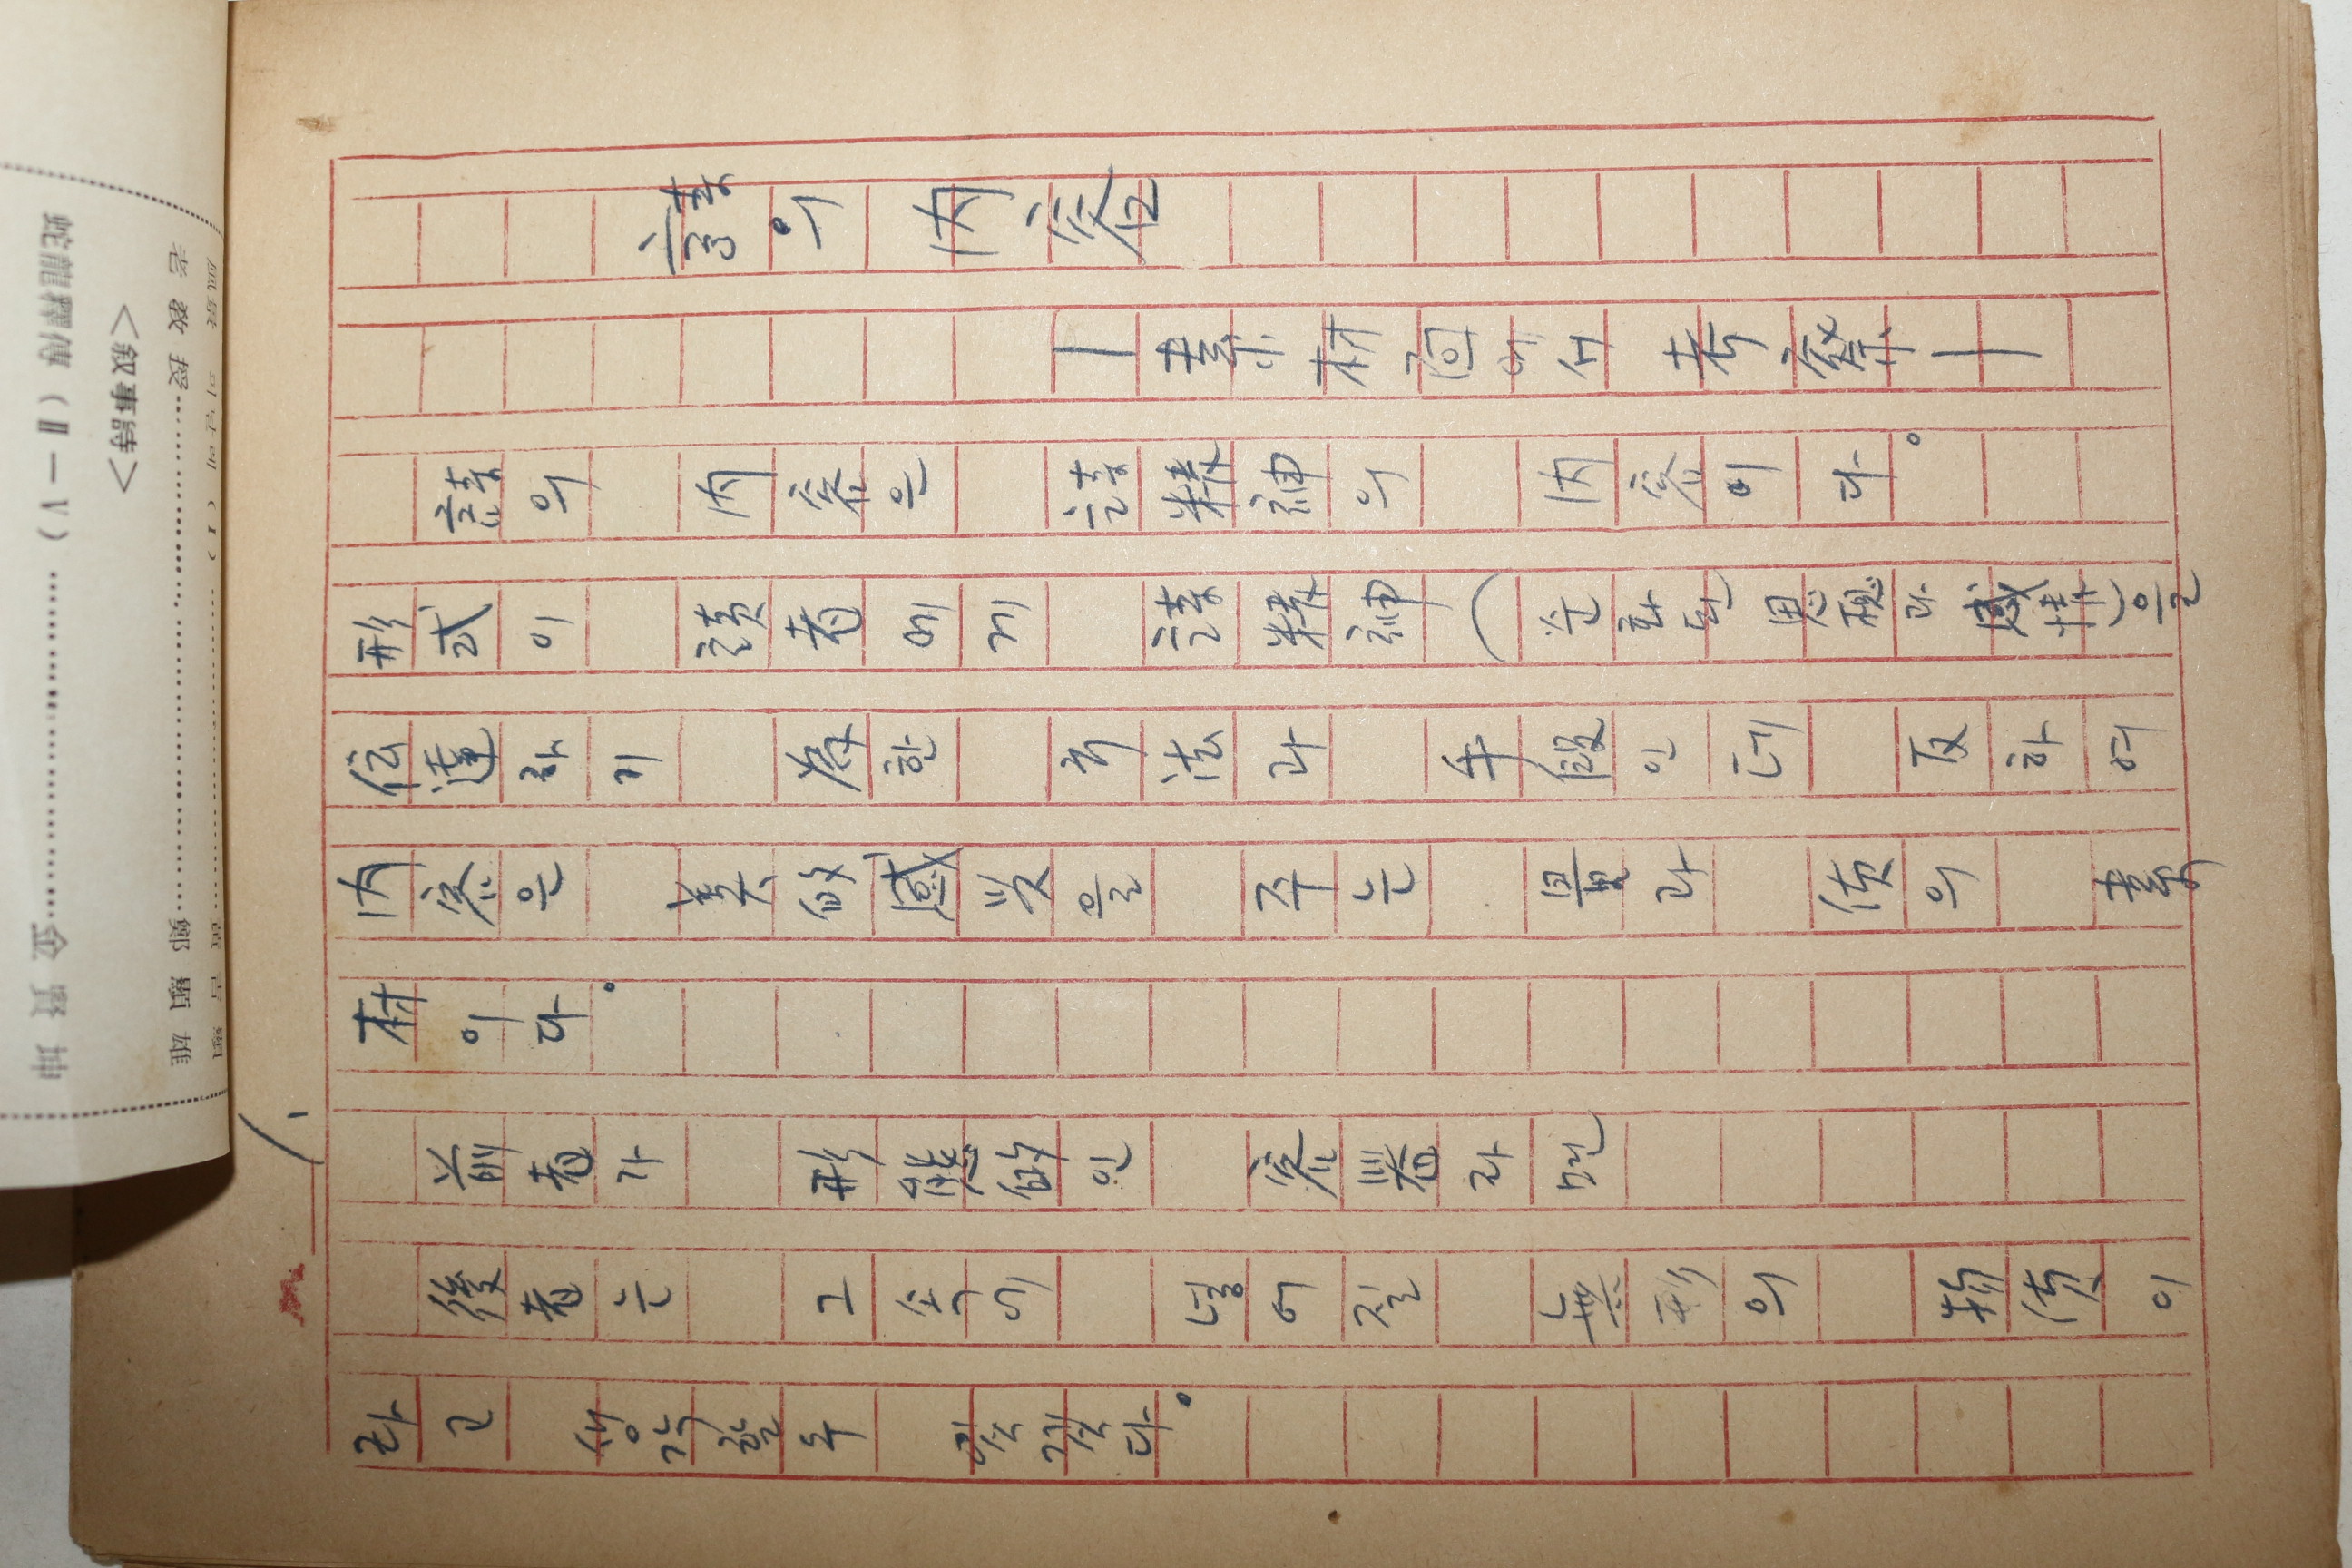 蛇龍釋傳 (Ⅱ—Ⅴ) ……金賢坤
<敍事詩>
老敎授……鄭顯雄
1.
詩의 內容
—素材面에서 考察—
詩의 內容은 詩精神의 內容이다。
形式이 讀者에게 詩精神(순화된 思想과 感情)을
伝達하기 爲한 方法과 手段인데 反하여
內容은 美的感兴을 주는 量과 质의 素
材이다。
前者가 形態的인 容器라면
後者는 그 속에 넣어질 無形의 物质이
라고 생각할 수 있겠다。